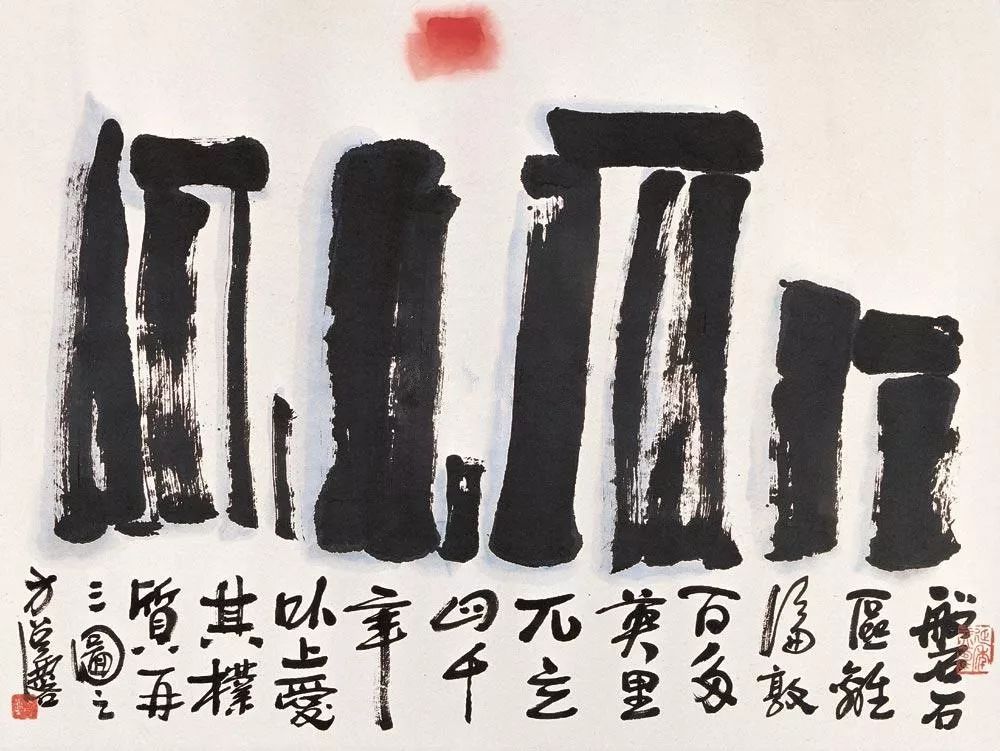 磐石
區離
倫敦
百多
英里
兀立
四千
年
以上愛
其樸
質再
三圖之
方召麐